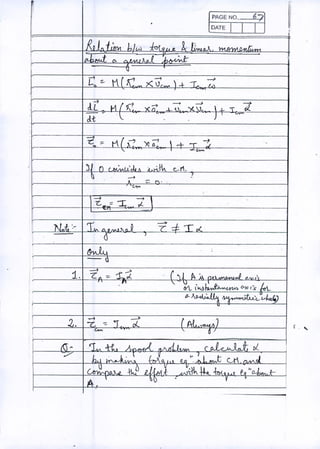 PAGE NO. 67
DATE
Relation b/w torque & linear momentum
about a general point
L⃗o = M(r⃗cm × v⃗cm) + Icm ω⃗
dL⃗/dt = M(r⃗cm × a⃗cm + v⃗cm × v⃗cm) + Icm α⃗
τ⃗o = M(r⃗cm × a⃗cm) + Icm α⃗
If O coincides with c.m.,
r⃗cm = 0
τ⃗cm = Icm α⃗
Note:- In general, τ⃗ ≠ I α
only
1. τ⃗A = IA α⃗ (If A is permanent axis
or instantaneous axis for
a radially symmetric body)
2. τ⃗cm = Icm α⃗ (Always)
Q- In the spool problem, calculate α
by making torque eqⁿ about CM. and
compare the effort with the torque eqⁿ about
A.